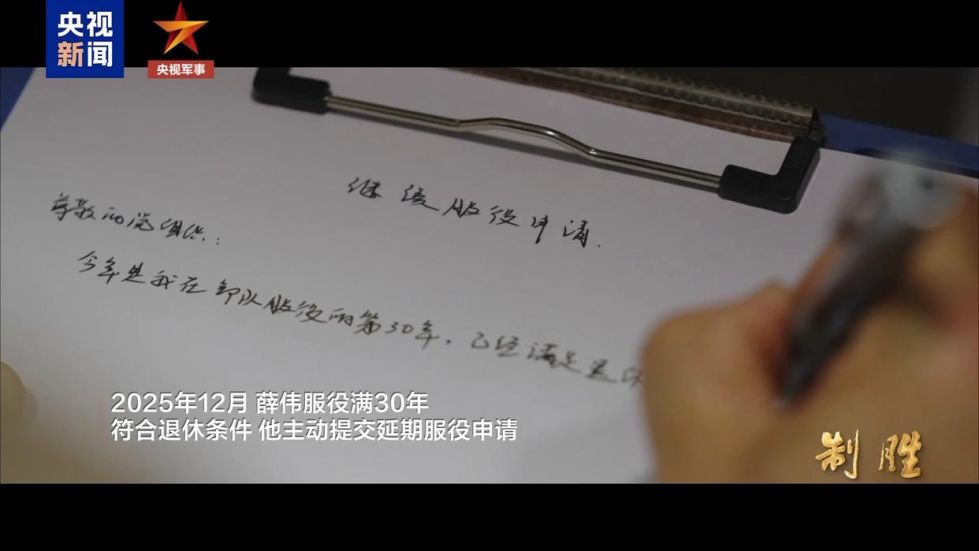 央视
新闻
央视军事
继续服役申请.
尊敬的党组织:
今年是我在部队服役的第30年，已经满足退休
2025年12月 薛伟服役满30年
符合退休条件 他主动提交延期服役申请
制胜